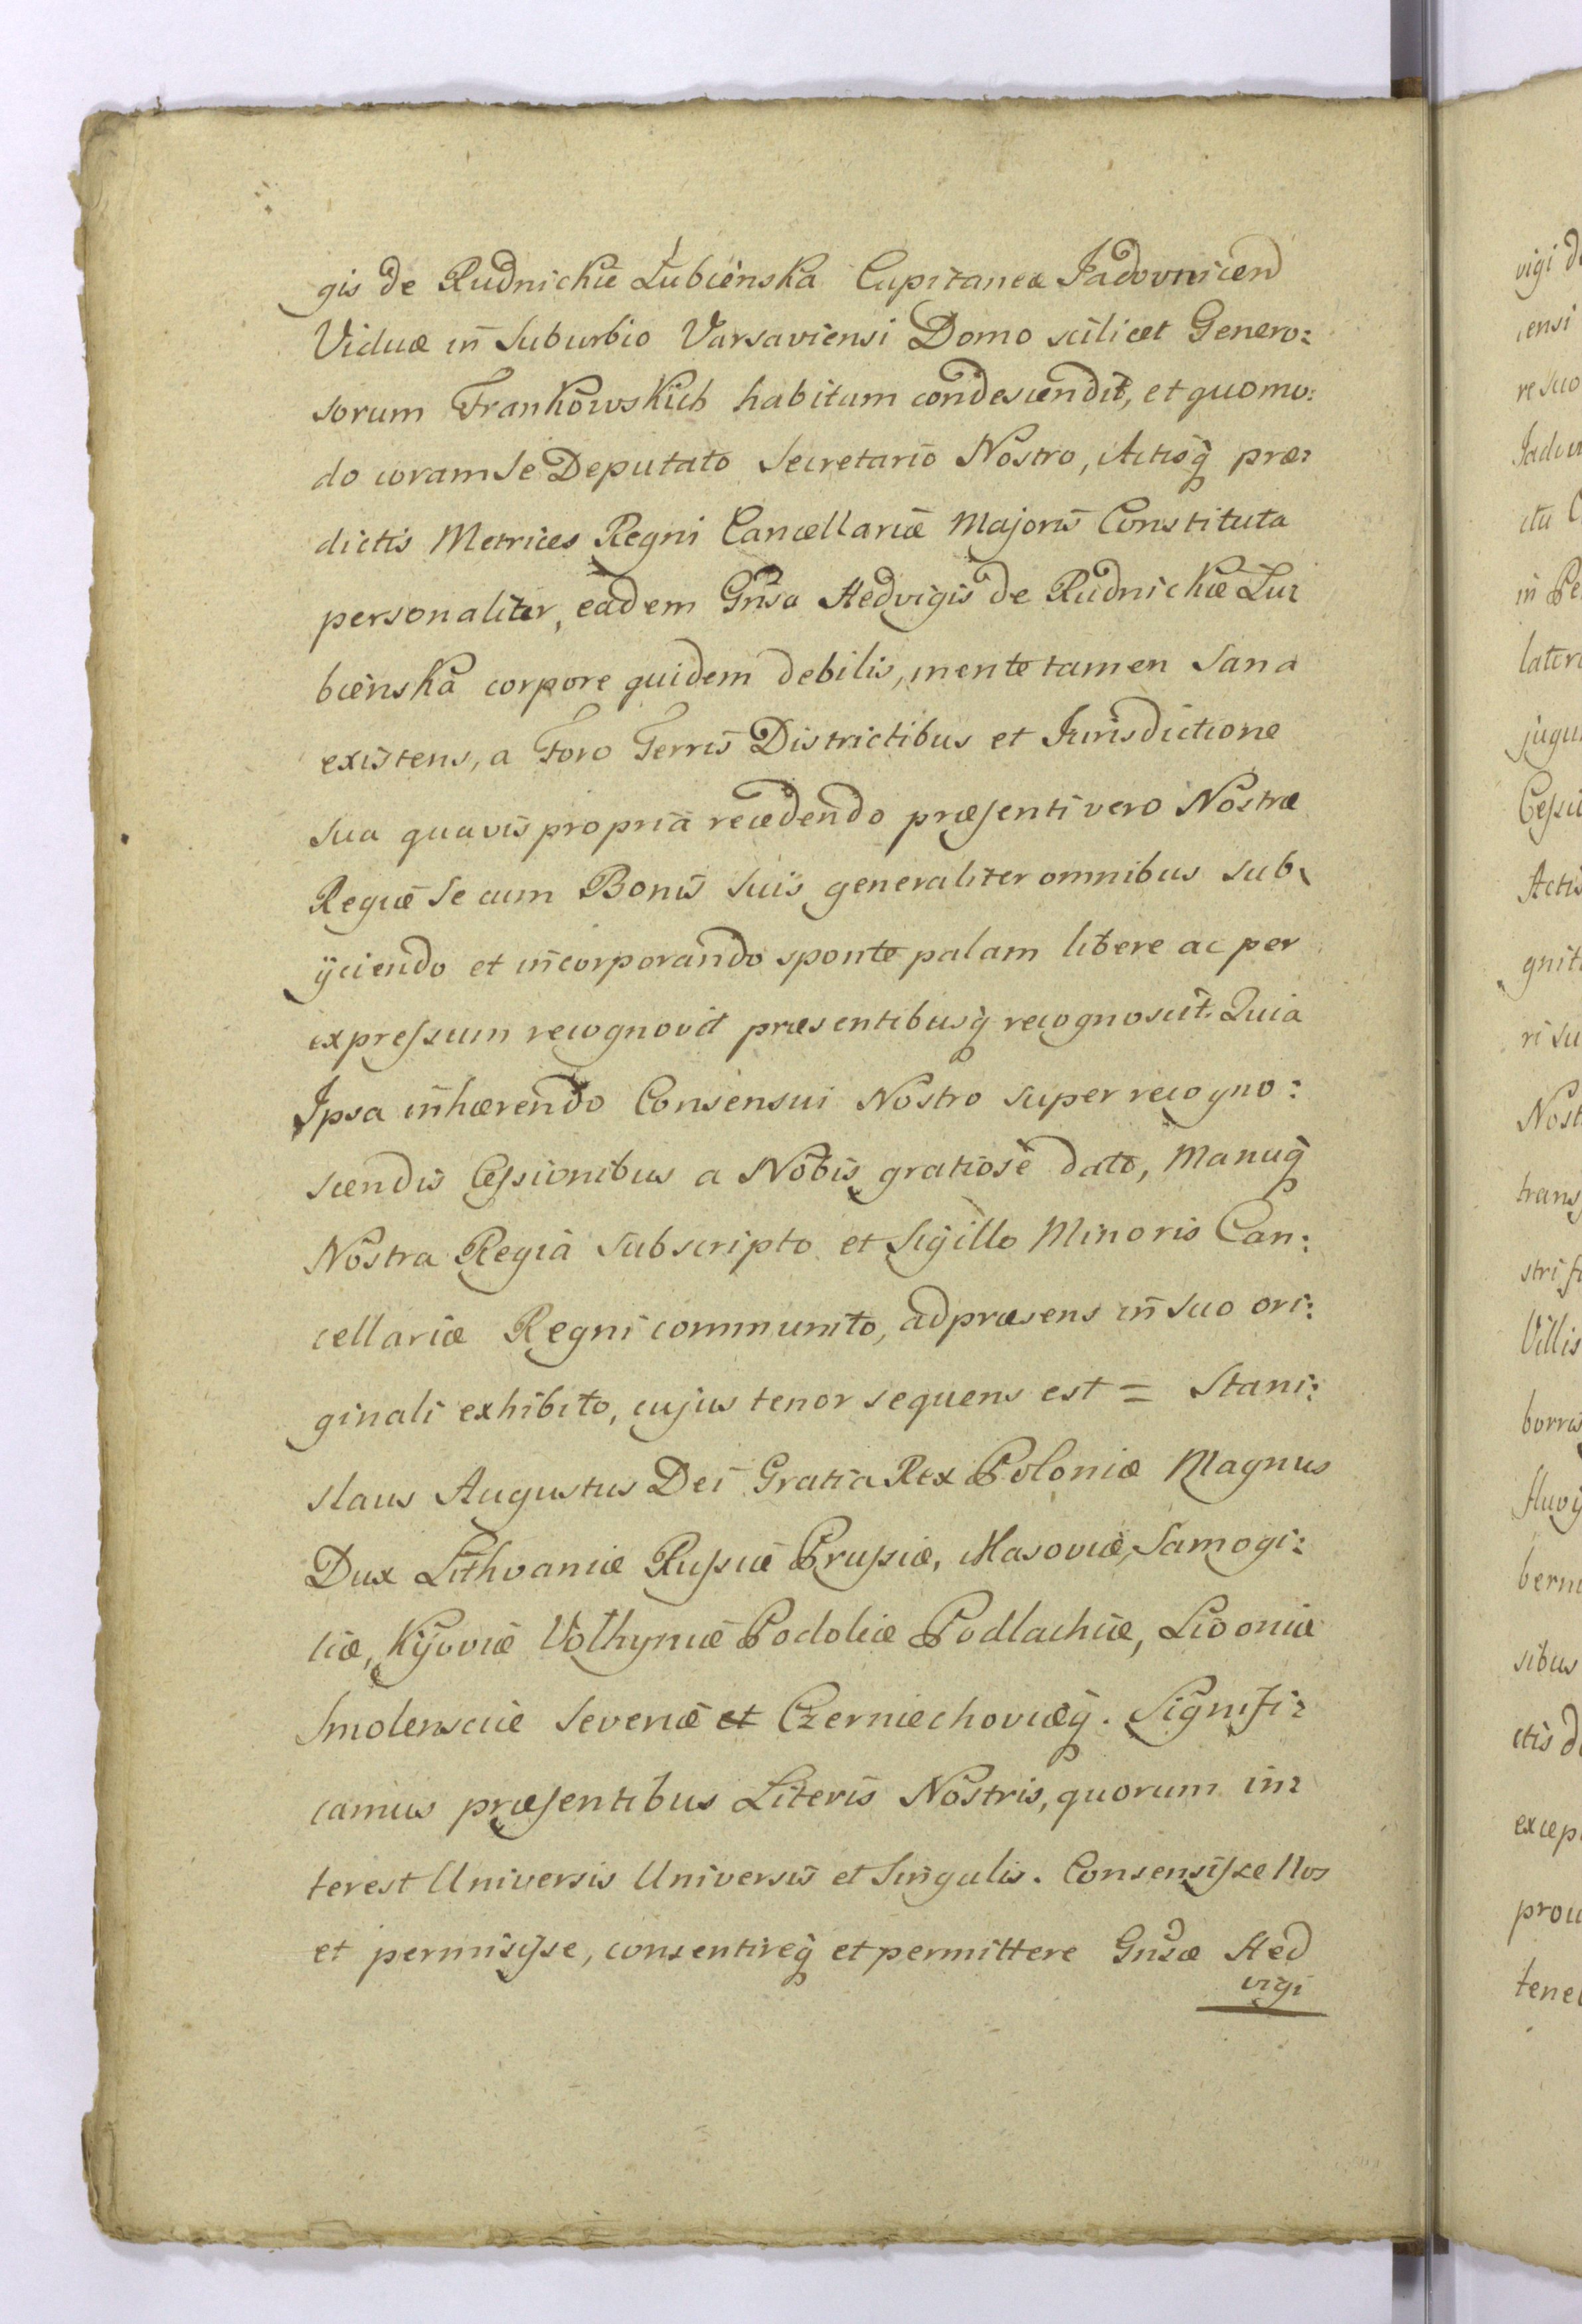 gis de Rudnickie Łubienska Capitanea Jadovnicen
Viduæ in Suburbio Varsaviensi Domo scilicet Genero:
sorum Frankowskich habitum condescendit, et quomo:
do coram se Deputato Secretario Nostro, Actisq præ:
dictis Metrices Regni Cancellariæ Majoris Constituta
personaliter, eadem Gnsa Hedvigis de Rudnickie Lu:
bienska corpore quidem debilis, mente tamen Sana
existens, a Foro Terris Districtibus et Jurisdictione
sua quavis propria recedendo præsenti vero Nostræ
Regiæ se cum Bonis suis generaliter omnibus sub
ijciendo et incorporando sponte palam libere ac per
expressum recognovit præsentibusq recognoscit. Quia
Ipsa inhærendo Consensui Nostro super recogno:
scendis Cessionibus a Nobis gratiose dato, Manuq
Nostra Regia Subscripto et Sigillo Minoris Can:
cellariæ Regni communito, ad præsens in Suo ori:
ginali exhibito, cujus tenor sequens est = Stani:
slaus Augustus Dei Gratia Rex Poloniæ Magnus
Dux Lithvaniæ Russiæ Prussiæ, Masoviæ, Samogi:
tiæ, Kijoviæ Volhyniæ Podoliæ Podlachiæ, Livoniæ
Smolensciæ Severiæ et Czerniechoviæq. Signifi:
camus præsentibus Literis Nostris, quorum in:
terest Universis Universis et Singulis. Consensisse Nos
et permisisse, consentireq et permittere Gnsæ Hed
vigi